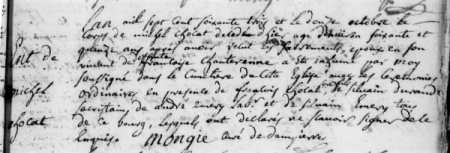 L'an mil sept cent soixante trois et le douze octobre le
corps de michel chocat decedé d'hier agé d'environ soixante et
quinze ans apres avoir reçu les sacrements, epoux en son
vivant de françoise chantereanne a été inhumé par moy
soussigné dans le cimetiere de cette Eglise avec les ceremonies
ordinaires en presence de françois chocat, de silvain durand
sacristain, de andré Emery et de silvain Emery tous
de ce bourg, lesquels ont declarés ne sçavoir signer de ce
Enquis. Mongie curé de dampierre
Ent de
michel
chocat